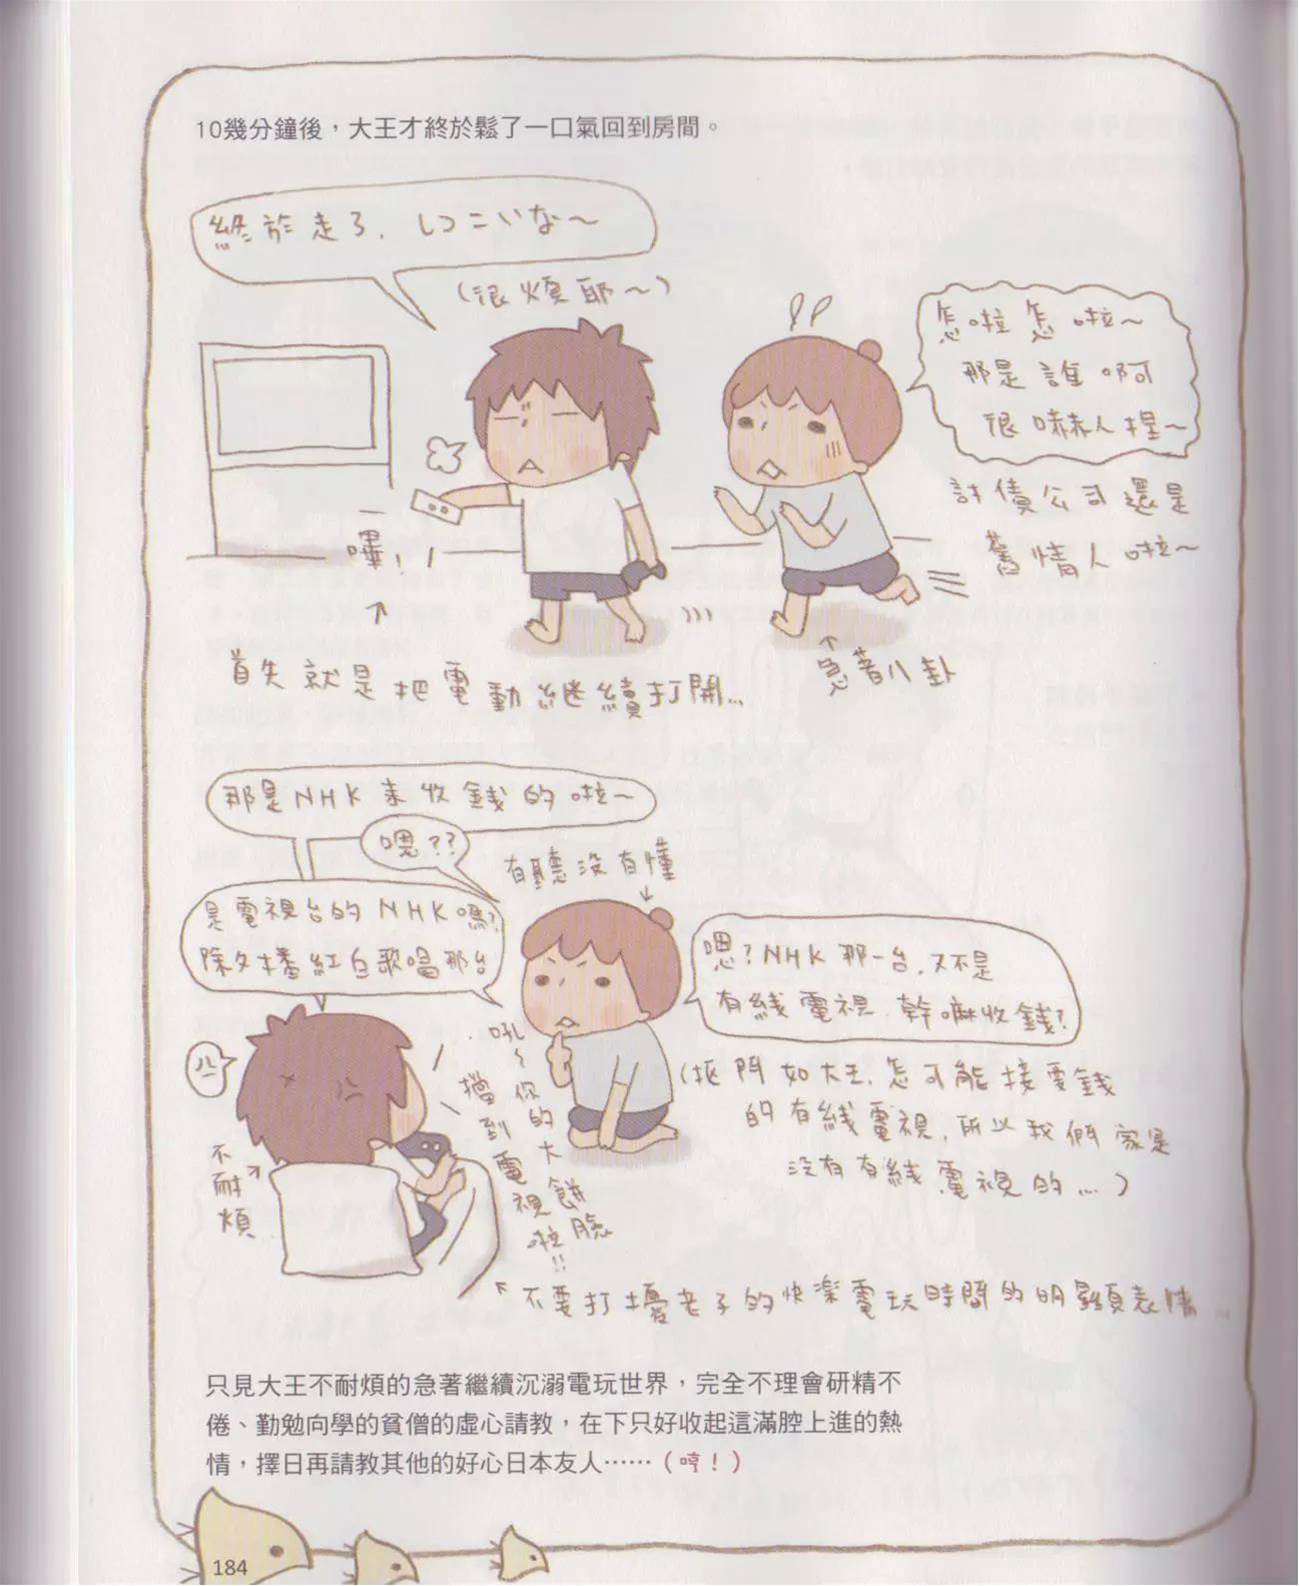 10幾分鐘後，大王才終於鬆了一口氣回到房間。
終於走了. しつこいな～
(很煩耶～)
怎啦怎啦～
那是誰啊
很嚇人捏～
討債公司還是
舊情人啦～
一嗶!
首先就是把電動繼續打開...
急著八卦
那是NHK來收錢的啦～
嗯??
有聽沒有懂
是電視台的NHK嗎?
除夕播紅白歌唱那台
嗯?NHK那一台.又不是
有线電視.幹嘛收錢?
(摳門如大王.怎可能接要錢
的有線電視.所以我們家是
沒有有线電視的...)
不耐煩
吼～你的大餅臉
擋到電視啦!!
不要打擾老子的快樂電玩時間的明顯表情
只見大王不耐煩的急著繼續沉溺電玩世界，完全不理會研精不
倦、勤勉向學的貧僧的虛心請教，在下只好收起這滿腔上進的熱
情，擇日再請教其他的好心日本友人……（哼！）
184